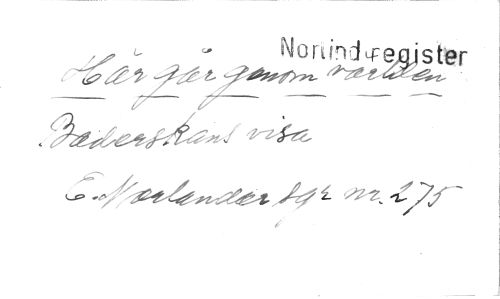 Norlind-register
Här går genom världen
Baderskans visa
E. Norlander sgr nr. 275